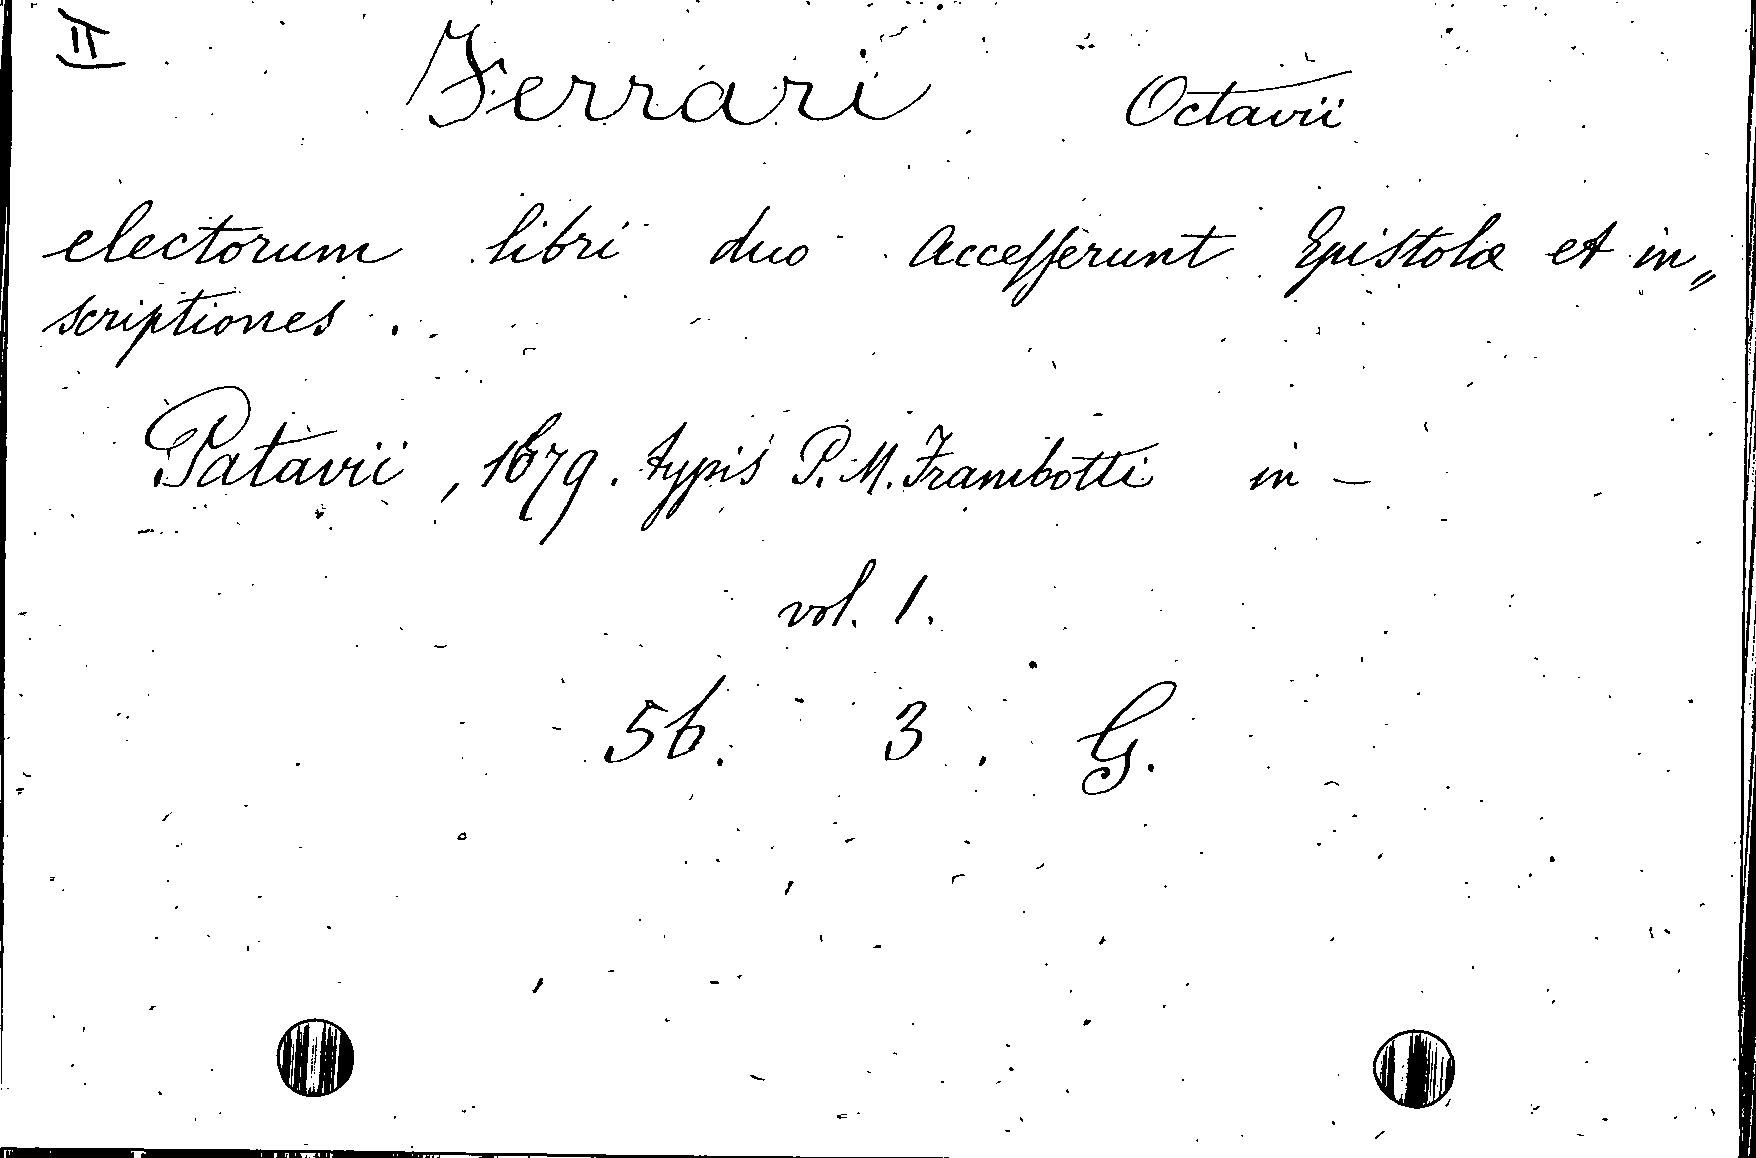 II
Ferrari Octavii
electorum libri duo accesserunt Epistolæ et in„
scriptiones.
Patavii, 1679. typis P. M. Frambotti in —
vol. 1.
56. 3. G.